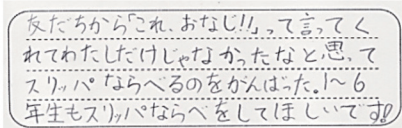 友だちから「これ、おなじ!!」って言ってく
れてわたしだけじゃなかったなと思って
スリッパならべるのをがんばった。1〜6
年生もスリッパならべをしてほしいです!